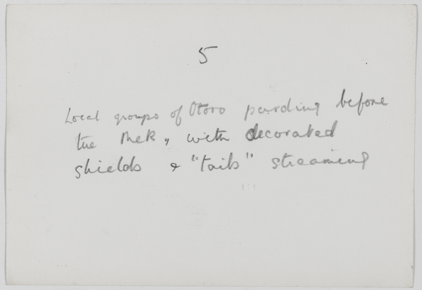 5
Local groups of Otoro parding before
the Mek, with decorated
shields & "tails" streaming